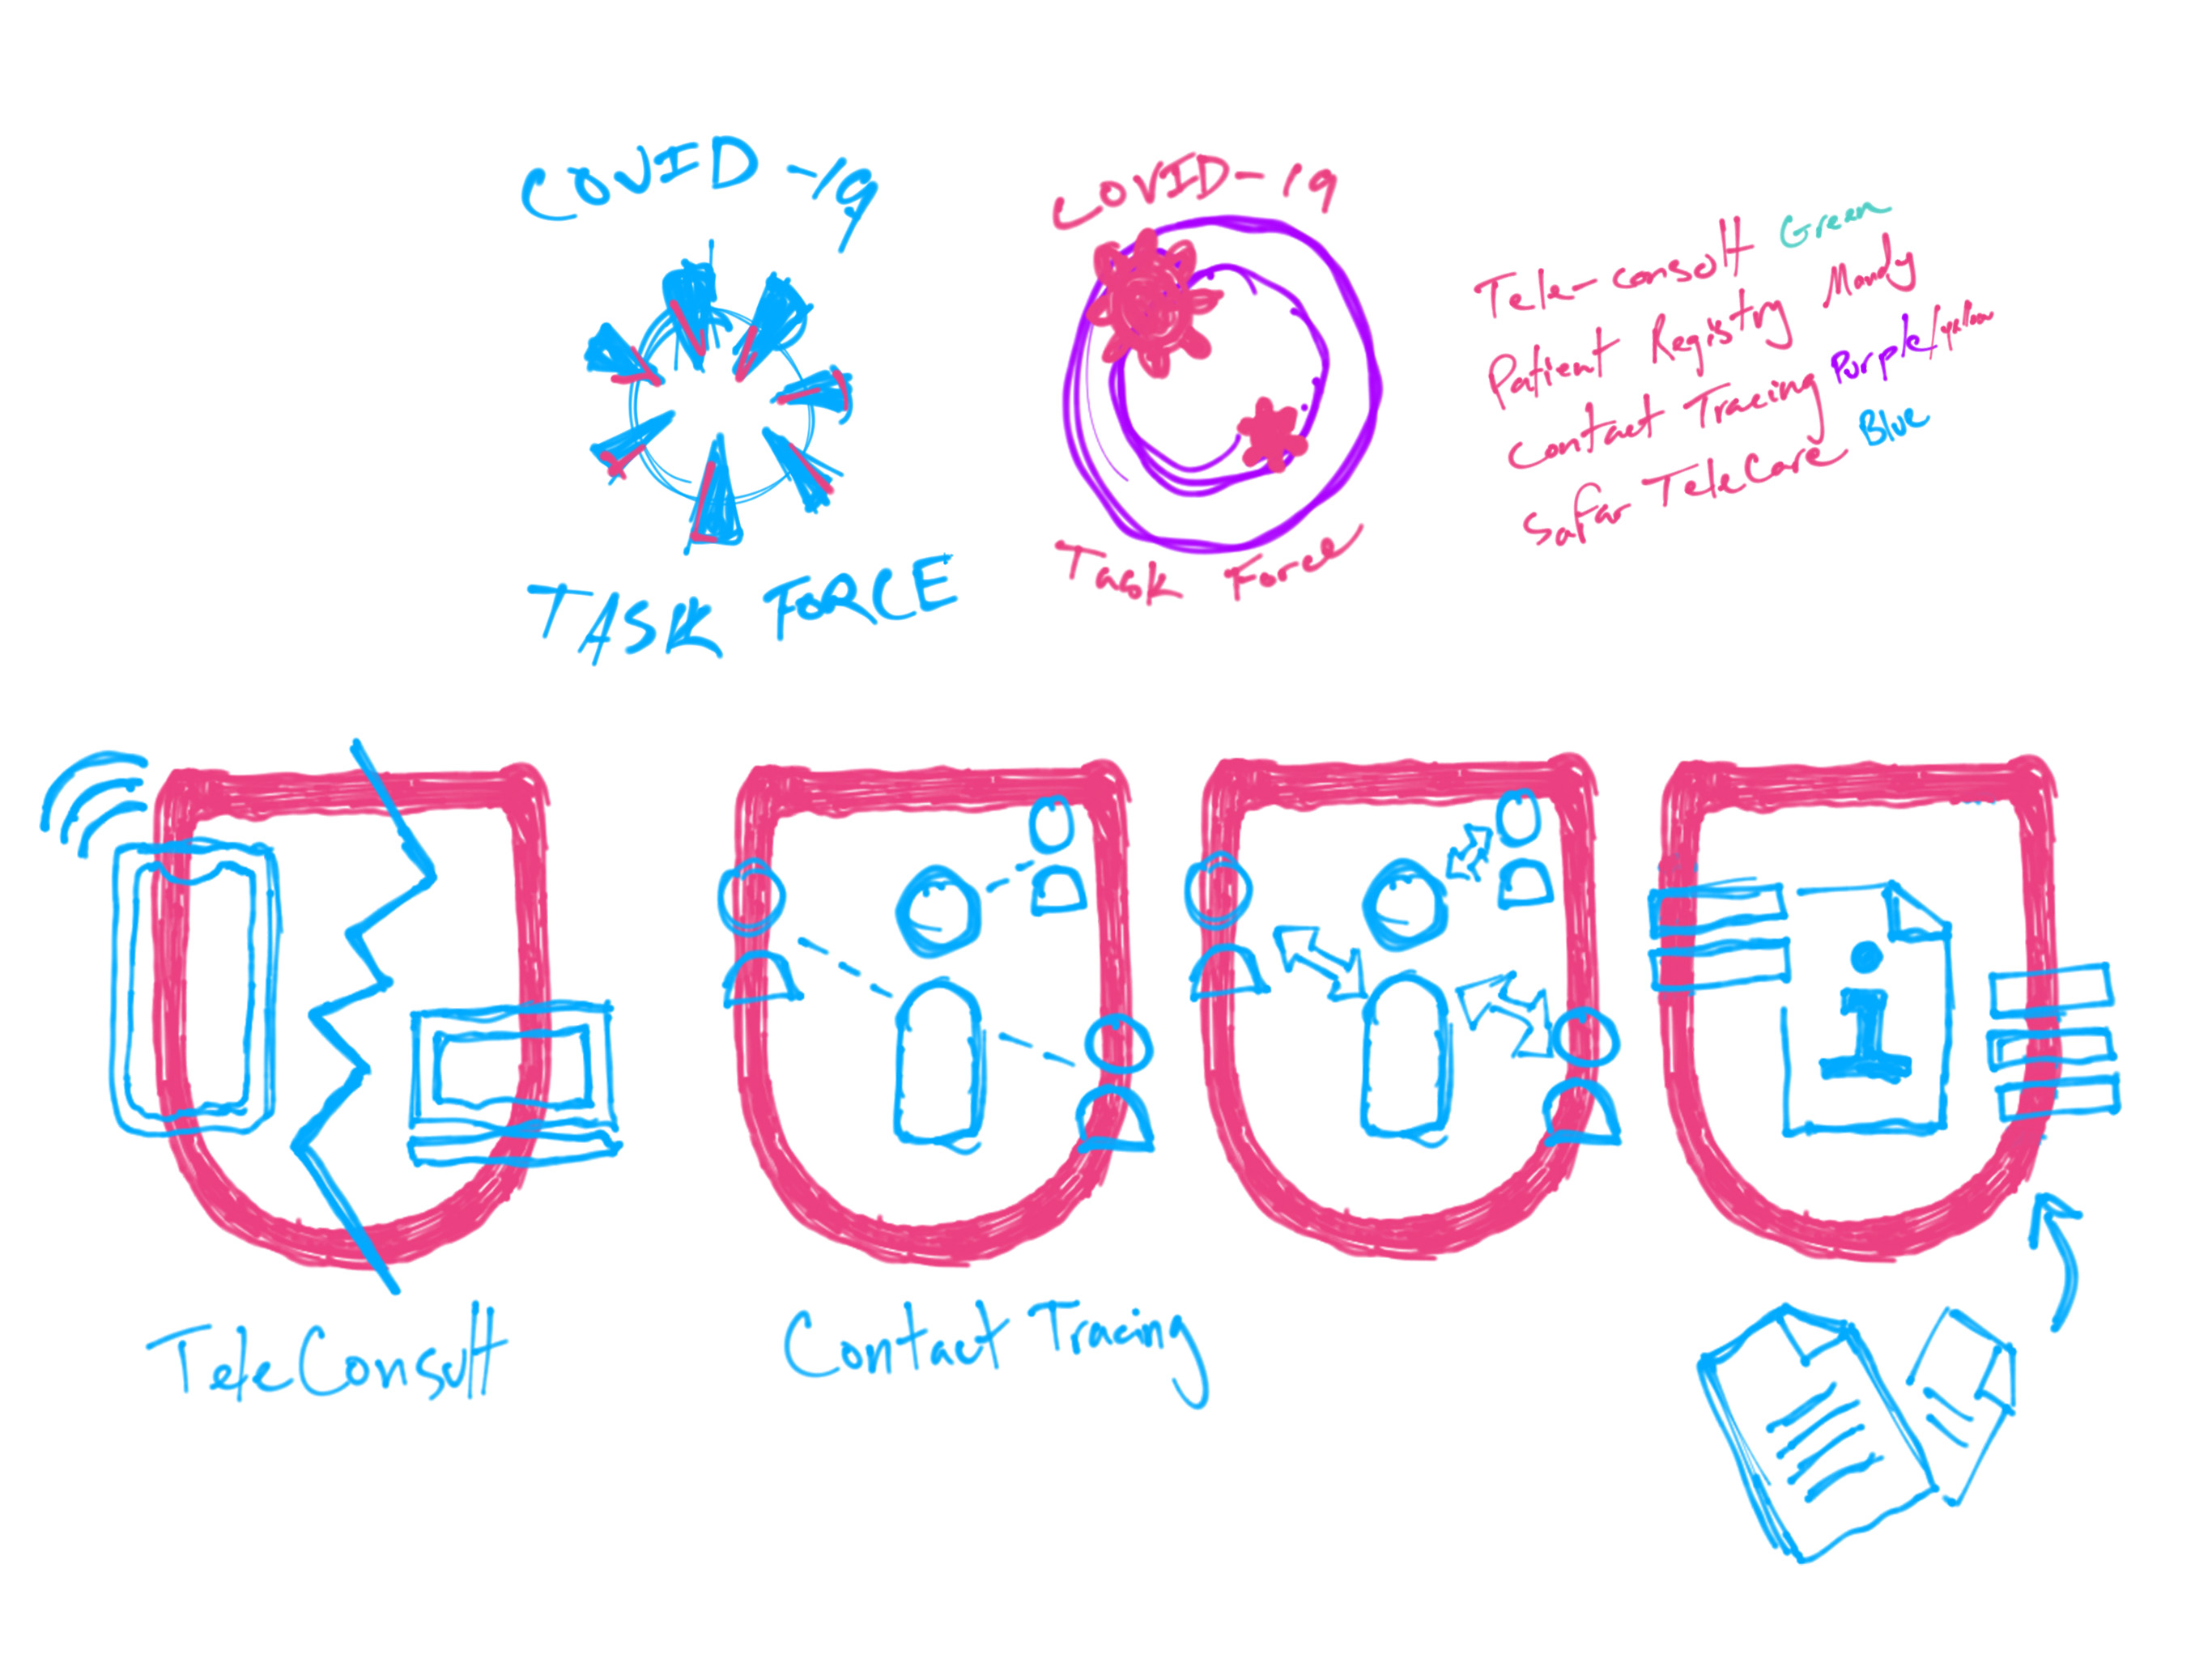 COVID-19
TASK FORCE
COVID-19
Task Force
Tele-consult Green
Patient Registry Mandy
Contact Tracing Purple/yellow
Safar TeleCare Blue
TeleConsult
Contact Tracing
i